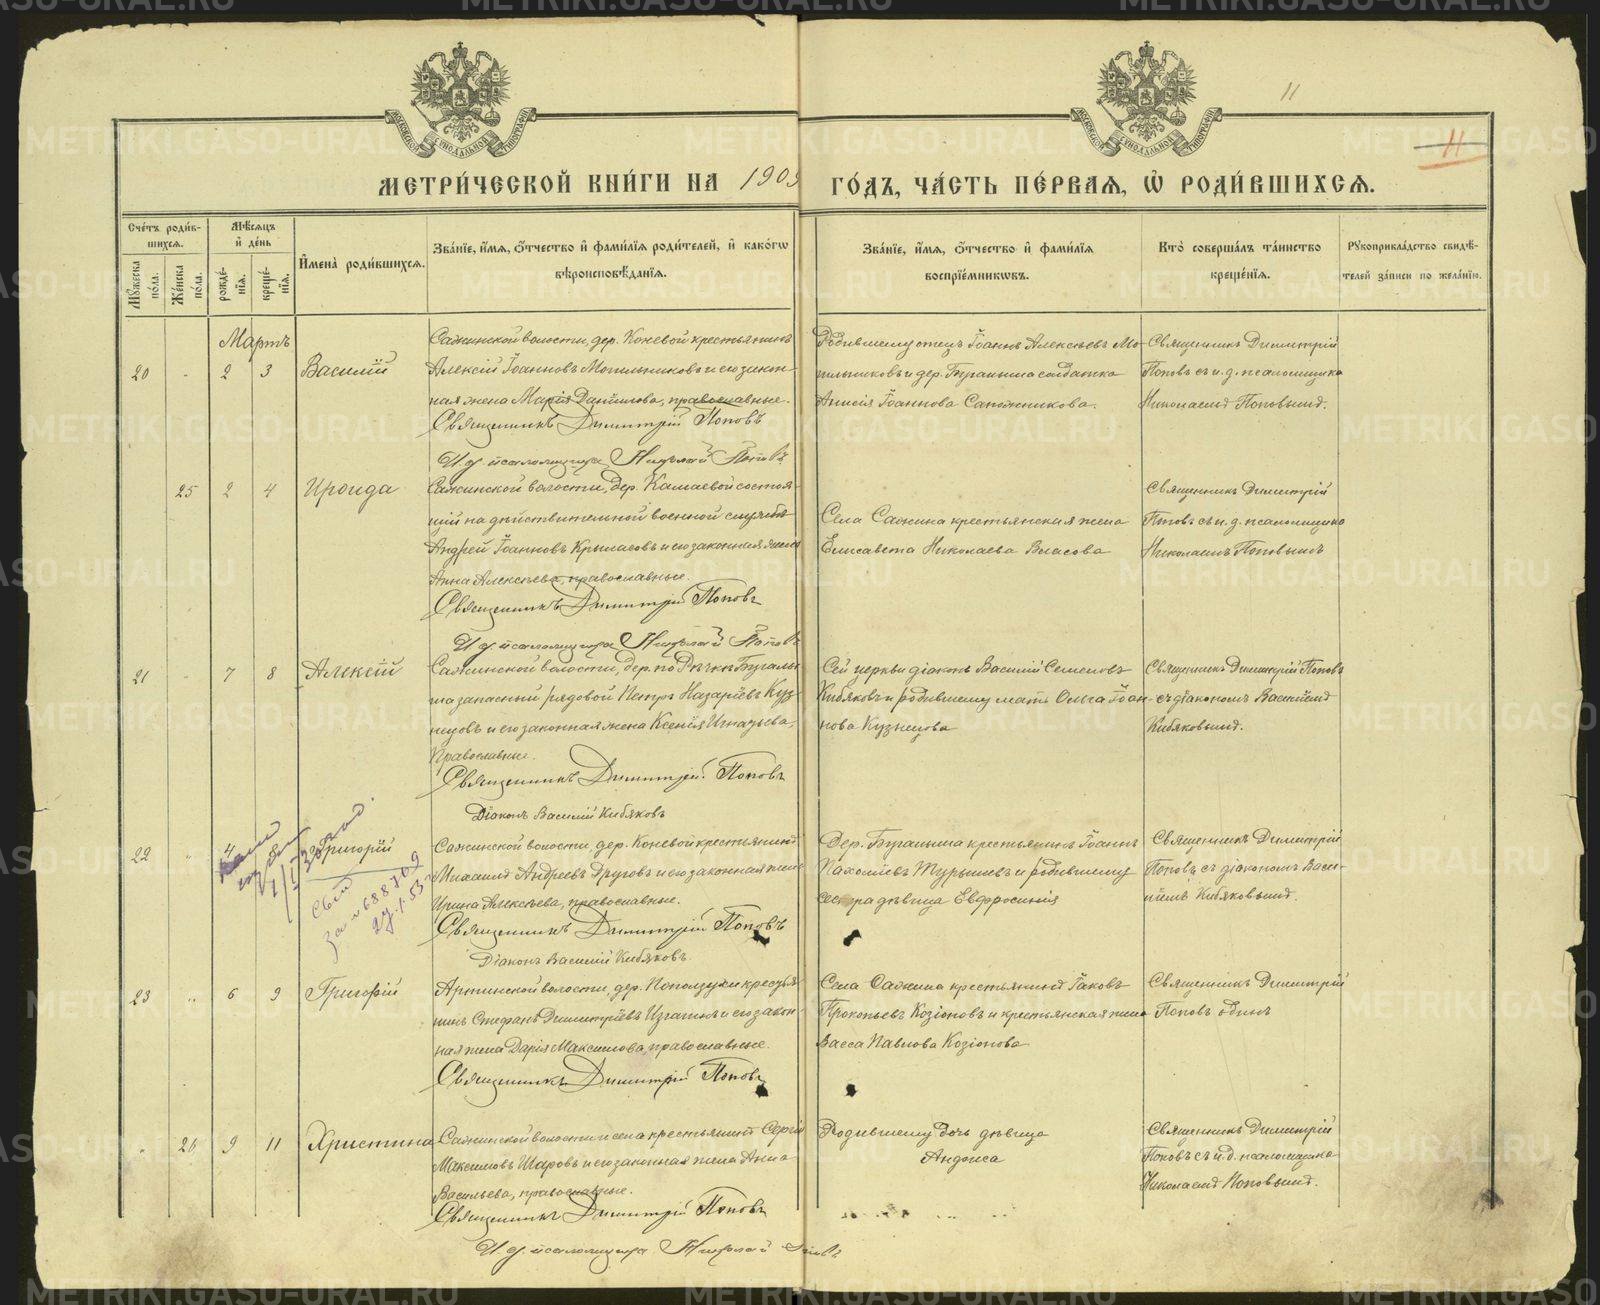 11
11
МОСКОВСКОЙ СѴНОДАЛЬНОЙ ТИПОГРАФІИ
МОСКОВСКОЙ СѴНОДАЛЬНОЙ ТИПОГРАФІИ
МЕТРИ́ЧЕСКОЙ КНИ́ГИ НА 1909 ГО́ДЪ, ЧА́СТЬ ПЕ́РВАѦ, Ѡ҆ РОДИ́ВШИХСѦ.
Сче́тъ роди́в-
шихсѧ.
Мꙋ́жеска по́ла.
Же́нска по́ла.
Мѣ́сѧцъ
и҆ де́нь
рожде́нїѧ.
креще́нїѧ.
И҆мена̀ роди́вшихсѧ.
Зва́нїе, и҆́мѧ, ѻ҆́тчество и҆ фами́лїѧ роди́телей, и҆ како́гѡ
вѣроисповѣ́данїѧ.
Зва́нїе, и҆́мѧ, ѻ҆́тчество и҆ фами́лїѧ
воспрїе́мникѡвъ.
Кто̀ соверша́лъ та́инство
креще́нїѧ.
Рꙋкоприкла́дство свидѣ́-
телей за́писи по жела́нїю.
Мартъ
20 " 2 3 Василій
Сажинской волости, дер. Коневой крестьянинъ
Алексій Іоанновъ Мотыльниковъ и его закон-
ная жена Марія Даніилова, православные.
Священникъ Димитрій Поповъ
И. д. псаломщика Николай Поповъ
Родившему отецъ Іоаннъ Алексѣевъ Мо-
тыльниковъ и дер. Бугалыша солдатка
Анисія Іоаннова Сапожникова.
Священникъ Димитрій
Поповъ съ и. д. псаломщика
Николаемъ Поповымъ.
25 2 4 Ироида
Сажинской волости, дер. Камаевой состоя-
щій на дѣйствительной военной службѣ
Андрей Іоанновъ Крыласовъ и его законная жена
Анна Алексѣева, православные.
Священникъ Димитрій Поповъ
И. д. псаломщика Николай Поповъ
Села Сажина крестьянская жена
Елисавета Николаева Власова
Священникъ Димитрій
Поповъ съ и. д. псаломщика
Николаемъ Поповымъ
21 " 7 8 Алексій
Сажинской волости, дер. по Рѣчкѣ Бугалы-
ша запасный рядовой Петръ Назаріевъ Куз-
нецовъ и его законная жена Ксенія Игнатьева,
Православные.
Священникъ Димитрій Поповъ
Діаконъ Василій Кибяковъ
Сей церкви діаконъ Василій Семеновъ
Кибяковъ и родившему мать Ольга Іоан-
нова Кузнецова
Священникъ Димитрій Поповъ
съ діакономъ Василіемъ
Кибяковымъ.
22 " 4 8 Григорій
за № 688709
Сажинской волости, дер. Коневой крестьянинъ
Михаилъ Андреевъ Друговъ и его законная жена
Ирина Алексѣева, православные.
Священникъ Димитрій Поповъ
Діаконъ Василій Кибяковъ
Дер. Бугалыша крестьянинъ Іоаннъ
Пахоміевъ Турышевъ и родившему
сестра дѣвица Евфросинія
Священникъ Димитрій
Поповъ съ діакономъ Васи-
ліемъ Кибяковымъ.
23 " 6 9 Григорій
Артинской волости, дер. Поползухи крестья-
нинъ Стефанъ Димитріевъ Изгагинъ и его закон-
ная жена Дарія Максимова, православные.
Священникъ Димитрій Поповъ
Села Сажина крестьянинъ Іаковъ
Прокопьевъ Козіоновъ и крестьянская жена
Васса Павлова Козіонова
Священникъ Димитрій
Поповъ одинъ
" 26 9 11 Христина
Сажинской волости и села крестьянинъ Сергій
Максимовъ Шаровъ и его законная жена Анна
Васильева, православные.
Священникъ Димитрій Поповъ
И. д. псаломщика Николай Поповъ
Родившему дочь дѣвица
Священникъ Димитрій
Поповъ съ и. д. псаломщика
Николаемъ Поповымъ.
METRIKI.GASO-URAL.RU